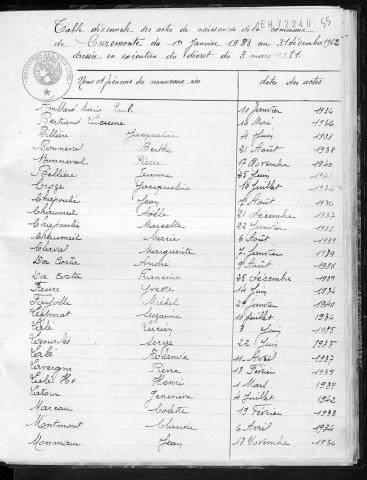 EH 72240 45
Table décennale des actes de naissance de la commune
de Curemonte du 1er Janvier 1933 au 31 décembre 1942
dressée en exécution du décret du 3 mars 1951.
Noms et prénoms du nouveaux nés dates des actes
10 Janvier 1936
Bertrand Lucienne 14 Mai 1934
Billère Jacqueline 4 Juin 1938
Bonneval Berthe 21 Août 1938
Bonneval Pierre 17 Novembre 1940
Bellière Jeanne 25 Juin 1941
Croze Jacqueline 16 Juillet 1934
Chapoulie Jean Août 1936
Chaumeil Odette 21 décembre 1937
Chapoulie Marcelle 22 Janvier 1938
Chaumeil Marie 6 Août 1939
Cheval Marguerite Janvier 1939
Da Costa André Août 1938
Da Costa Francine 25 décembre 1939
Faure Yvette 14 Juin 1934
Michel 29 Janvier 1940
Suzanne 10 Juillet 1934
Lucien Juin 1935
Serge 22 Juin 1935
11 Avril 1937
Lavergne Pierre 13 Février 1939
Henri 1 Mars 1939
Latour Geneviève 4 Juillet 1942
Marcau Colette 19 Février 1938
Montmont Claudie 6 Avril 1934
Monmaur Jean 18 Novembre 1936